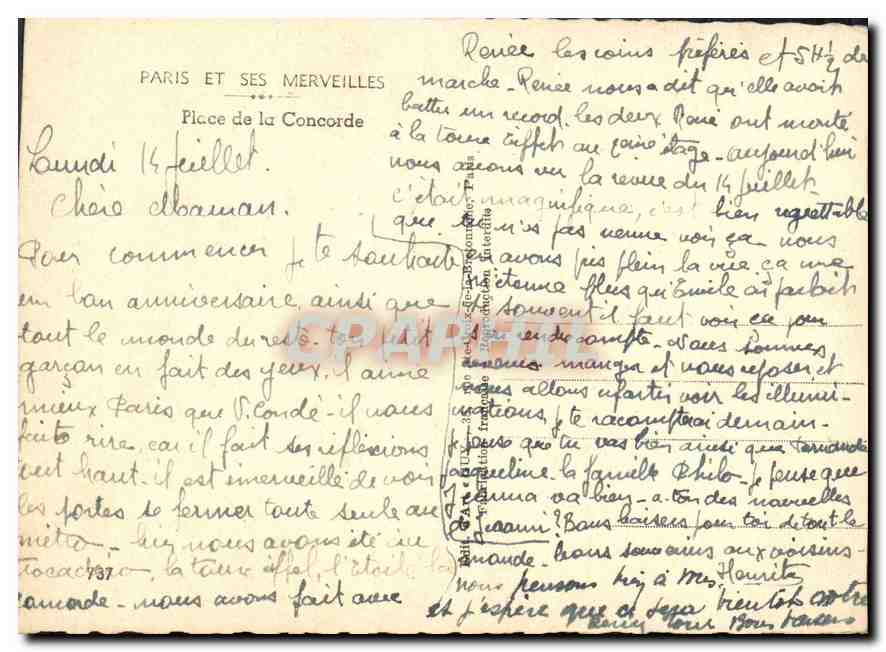 PARIS ET SES MERVEILLES
Place de la Concorde
Lundi 14 juillet.
Chère Maman.
Pour commencer je te souhaite
un bon anniversaire, ainsi que
tout le monde du reste. ton petit
garçon en fait des yeux, il aime
mieux Paris que V. Condé - il nous
faits rire, car il fait ses réflexions
tout haut - il est émerveillé de voir
les portes se fermer toute seule au
métro - hier nous avons été au
Trocadéro, la tour effel, l'Étoile la
concorde - nous avons fait avec
737
Renée les coins préférés et 5H½ de
marche - Renée nous a dit qu'elle avait
battu un record. les deux René ont monté
à la tour Eiffel au étage - aujourd'hui
nous avons vu la revue du 14 juillet
c'était magnifique, c'est bien regrettable
que tu n'es pas venue voir ça - nous
en avons pris plein la vue, ça me
m'étonne plus qu'Emile en parlait
si souvent il faut voir ça pour
s'en rendre compte - Nous sommes
revenus manger et nous reposer, et
nous allons repartir voir les illumi-
nations, je te raconterai demain -
je pense que tu vas bien ainsi que Fernande
Jacqueline - la famille Philo - je pense que
va bien - a-t-on des nouvelles
de ? Bons baisers pour toi de tout le
monde - bons souvenirs aux voisins -
nous pensons bien à Mr
et j'espère que ce sera bientôt notre
tour Bons baisers
Fabrication française - Reproduction interdite
CPAPHIL